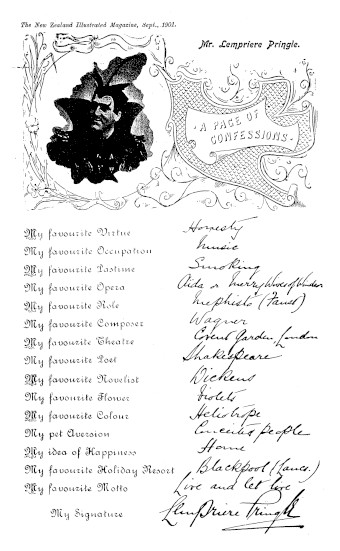 The New Zealand Illustrated Magazine, Sept., 1901.
Mr. Lempriere Pringle.
A PAGE OF CONFESSIONS.
My favourite Virtue Honesty
My favourite Occupation Music
My favourite Pastime Smoking
My favourite Opera Aida or Merry Wives of Windsor
My favourite Role Mephisto (Faust)
My favourite Composer Wagner
My favourite Theatre Covent Garden, London
My favourite Poet Shakespeare
My favourite Novelist Dickens
My favourite Flower Violets
My favourite Colour Heliotrope
My pet Aversion Conceited people
My idea of Happiness Home
My favourite Holiday Resort Blackpool (Lancs.)
My favourite Motto Live and let live
My Signature Lempriere Pringle